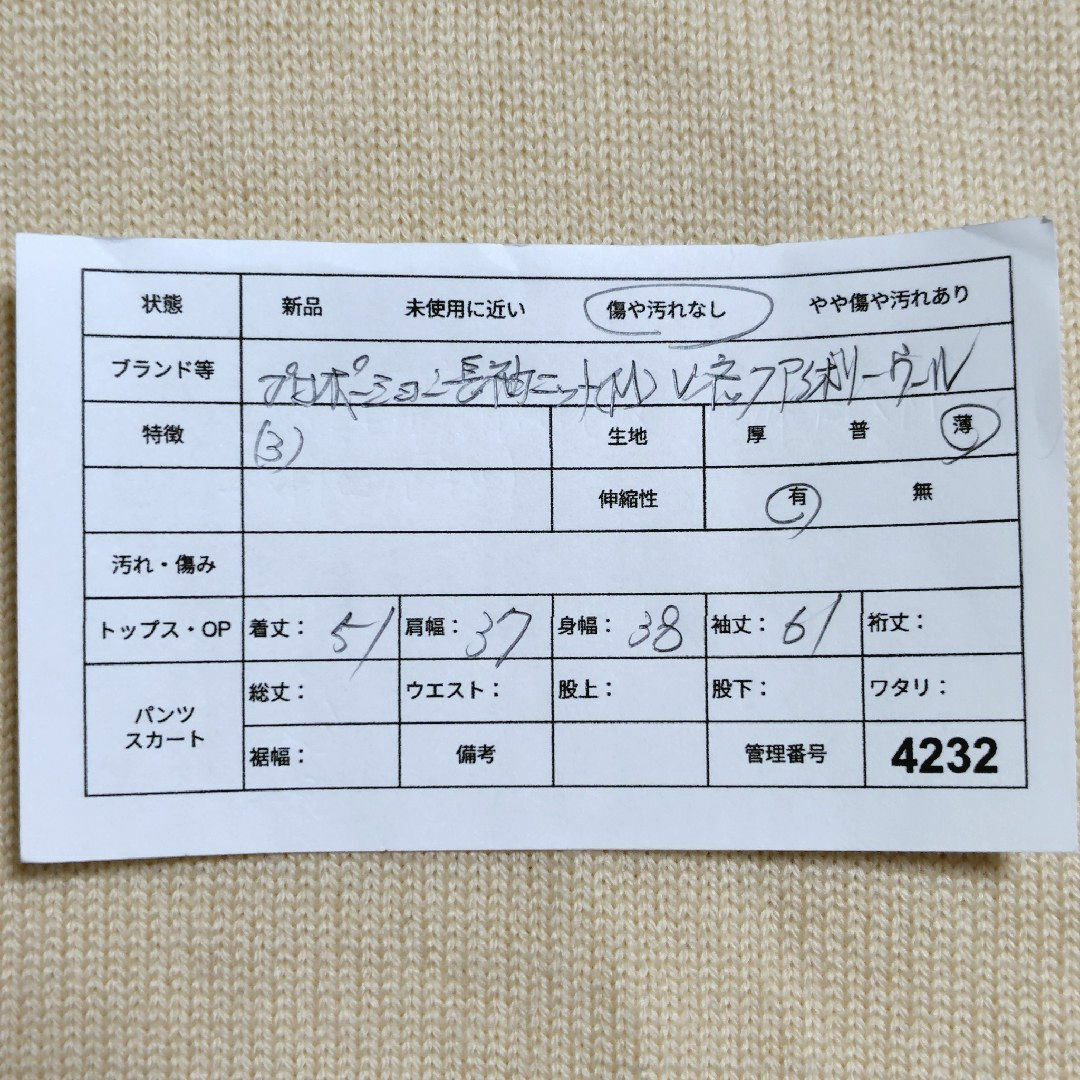 状態 新品 未使用に近い 傷や汚れなし やや傷や汚れあり
ブランド等 プロポーション 長袖ニット(M) Vネック アンゴ ウール
特徴 (3) 生地 厚 普 薄
伸縮性 有 無
汚れ・傷み
トップス・OP 着丈: 51 肩幅: 37 身幅: 38 袖丈: 61 裄丈:
パンツ スカート 総丈: ウエスト: 股上: 股下: ワタリ:
裾幅: 備考 管理番号 4232